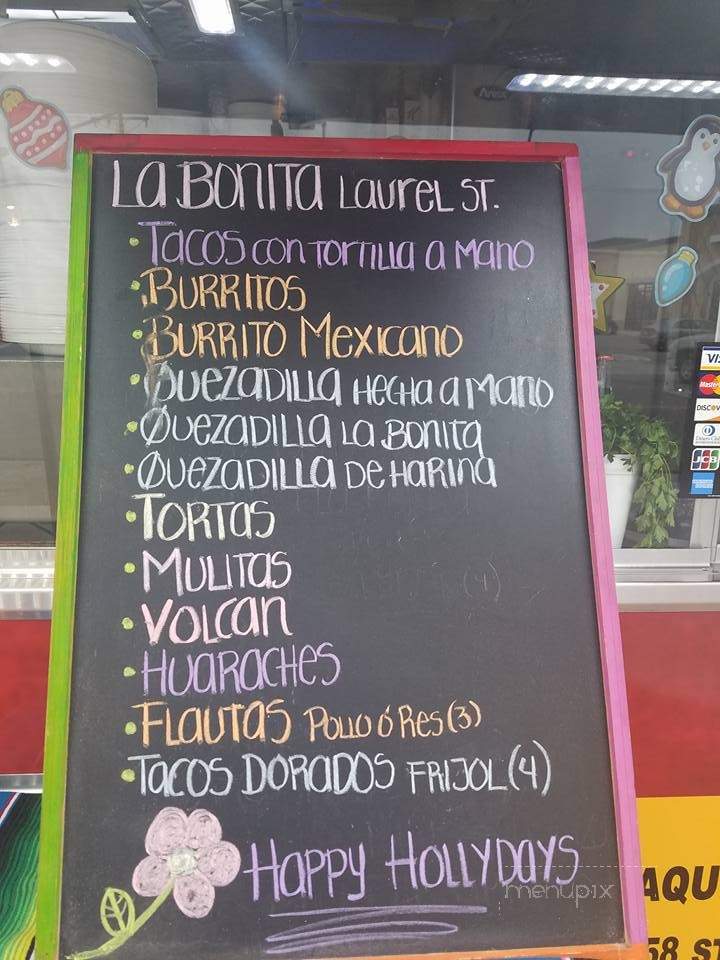 La Bonita Laurel St.
• Tacos con tortilla a mano
• Burritos
• Burrito Mexicano
• Quezadilla Hecha a Mano
• Quezadilla La Bonita
• Quezadilla de Harina
• Tortas
• Mulitas
• Volcan
• Huaraches
• Flautas Pollo ó Res (3)
• Tacos Dorados Frijol (4)
Happy Hollydays
menupix
VIS
Master
DISCOV
JCB
AQU
58 ST